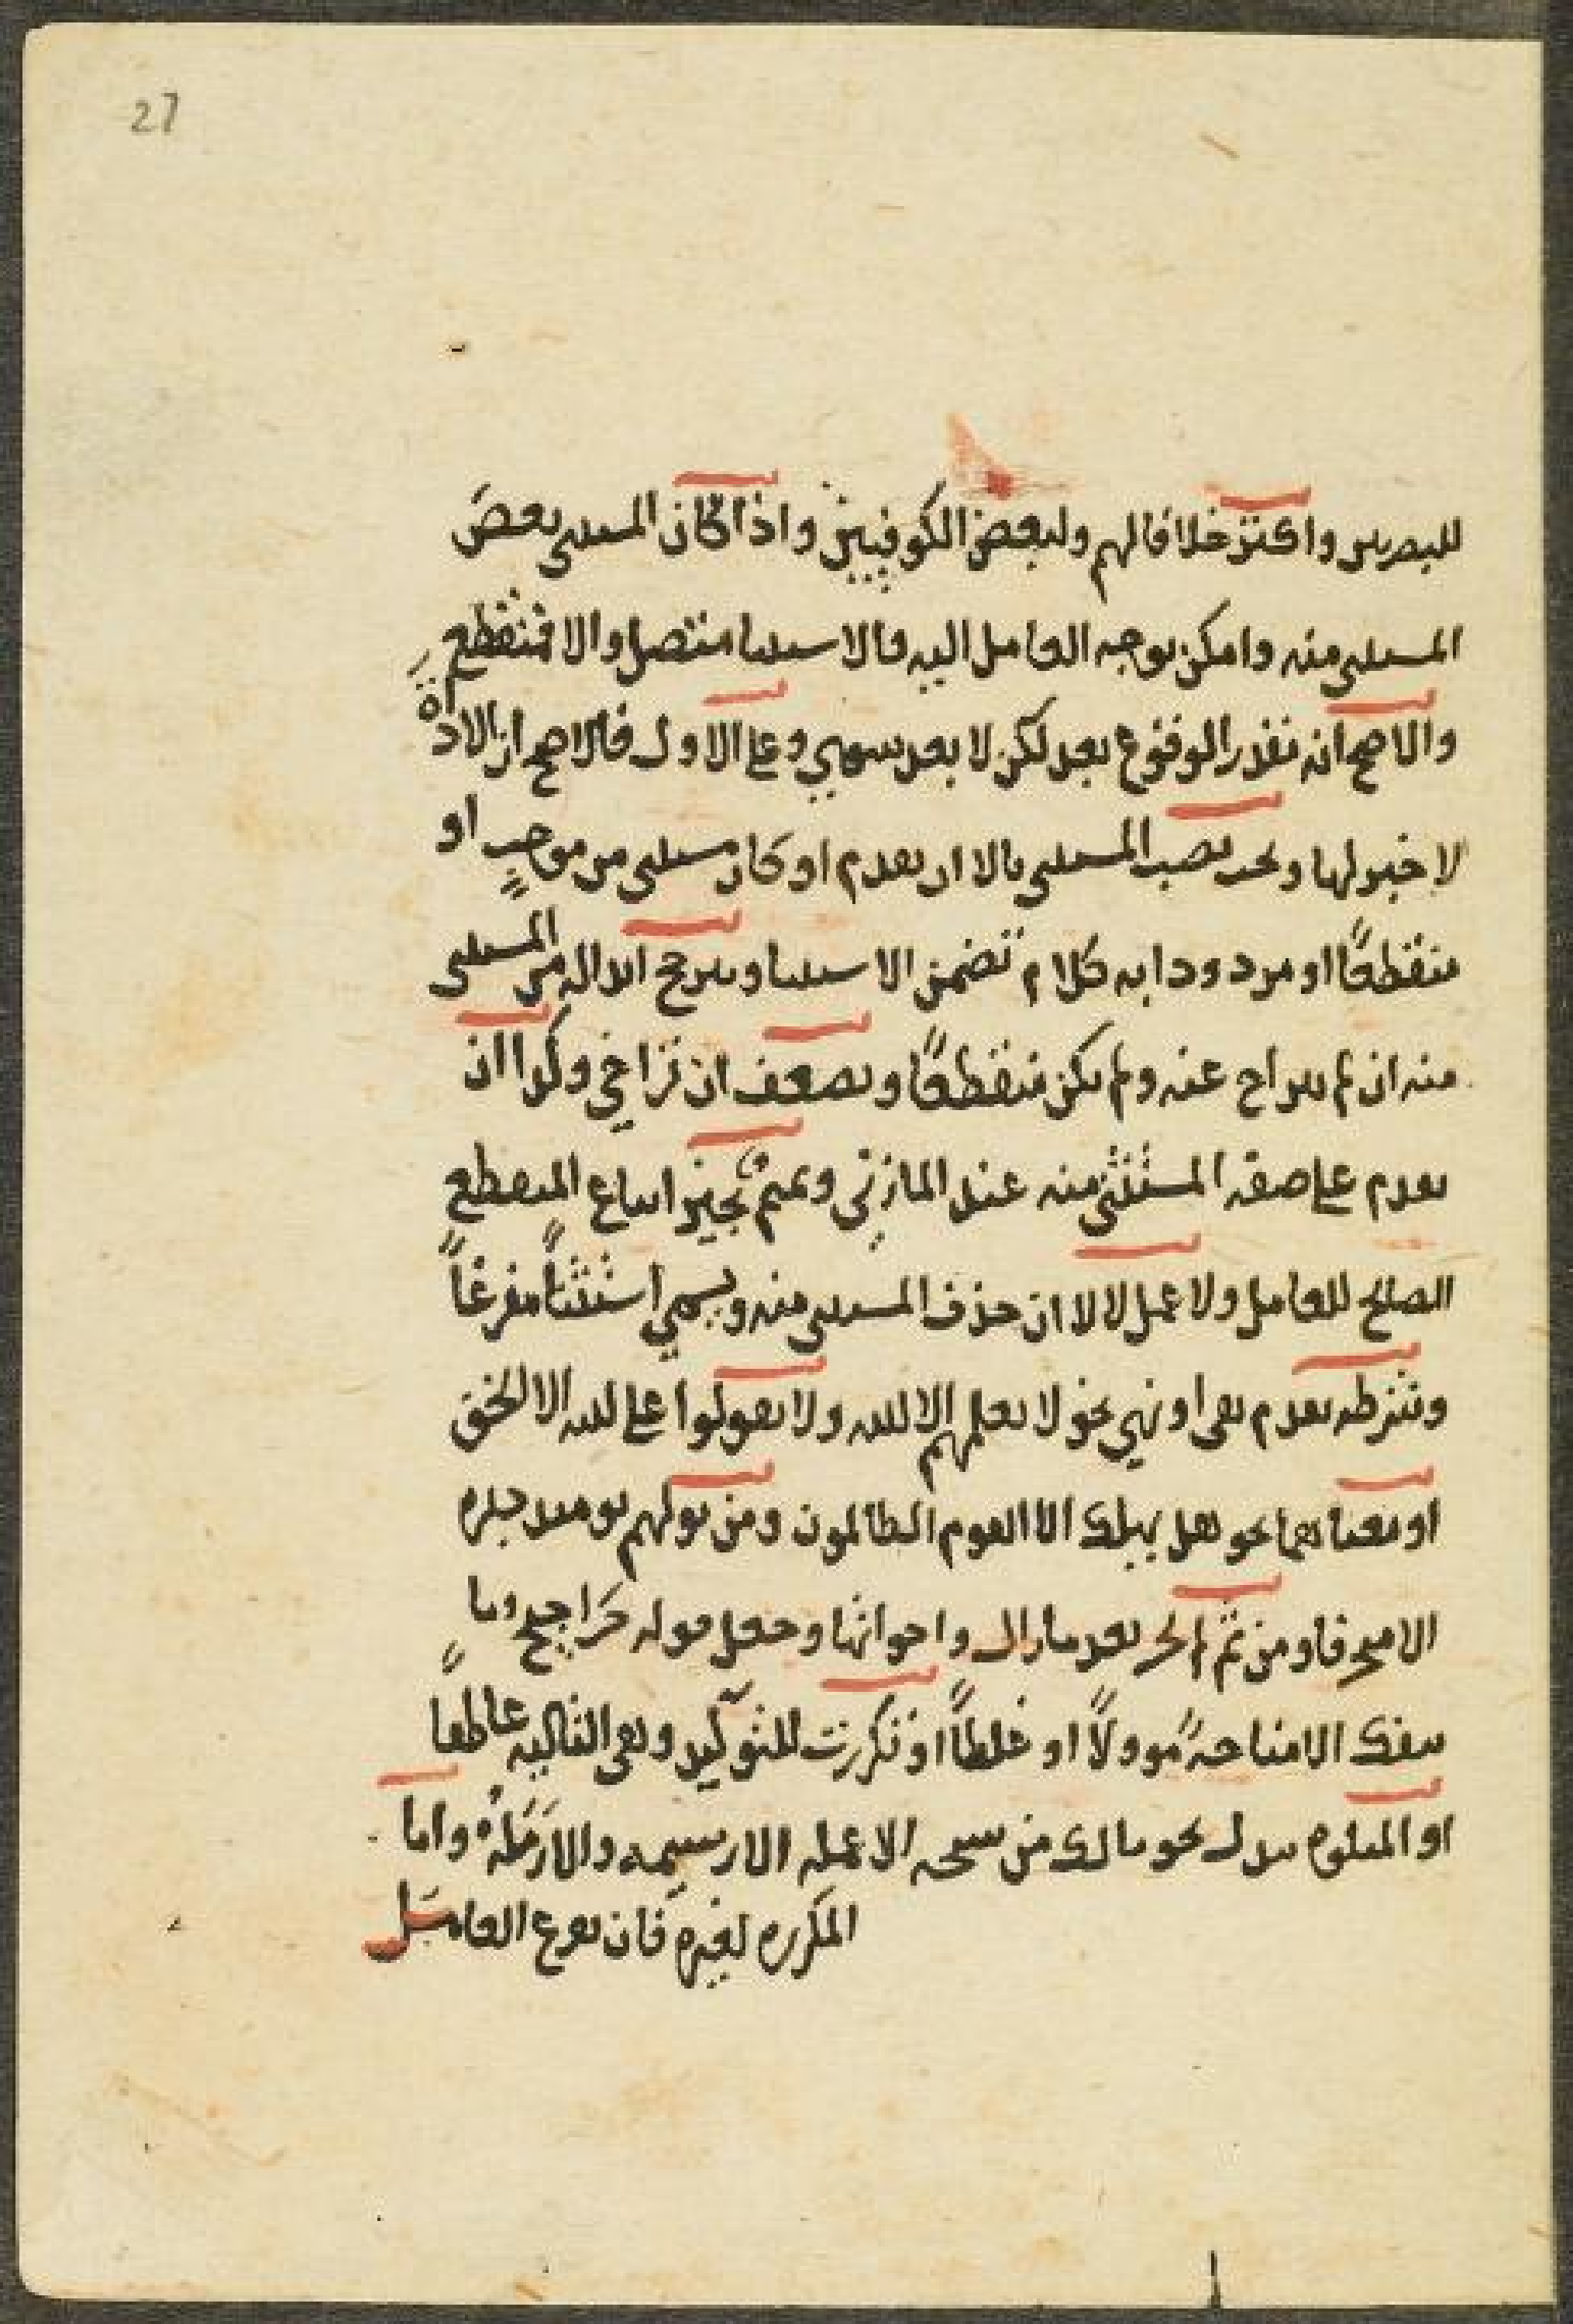 27
للبصريين واكثر خلافا لهم ولبعض الكوفيين واذا كان المستثنى بعض
المستثنى منه وامكن توجه العامل اليه فالاستثنا متصل والا فمنقطع
والاصح انه يقدر الوقوع بعد لكن لا بعد سوى وعلى الاول فالاصح ان الاداة
لا خبر لها ويجب نصب المستثنى بالا ان تقدم او كان مستثنى من موجب او
منقطعًا او مردودا به كلام تضمن الاستثنا ويترجح ابداله من المستثنى
منه ان لم يتراخ عنه ولم يكن منقطعًا ويضعف ان تراخى وكذا ان
تقدم على صفة المستثنى منه عند المازني وتميم تجيز اتباع المنقطع
الصالح للعامل ولا عمل لالا ان حذف المستثنى منه ويسمى استثناً مفرغاً
وشرطه تقدم نفى او نهى نحو لا يعلمهم الا الله ولا تقولوا على الله الا الحق
او معناهما نحو هل يهلك الا القوم الظالمون ومن يولهم يومئذ دبره
الا متحرفا ومن ثم لم يجز بعد ما زال واخواتها وجعل قوله حراجيج ما
تنفك الا مناخة مؤولًا او غلطًا او تكررت للتوكيد وهى التالية عاطفا
او المتلوه ببدل نحو مالك من شيخك الا عمله الا رسيمه والا رمله واما
المكرره لغيره فان تفرغ العامل